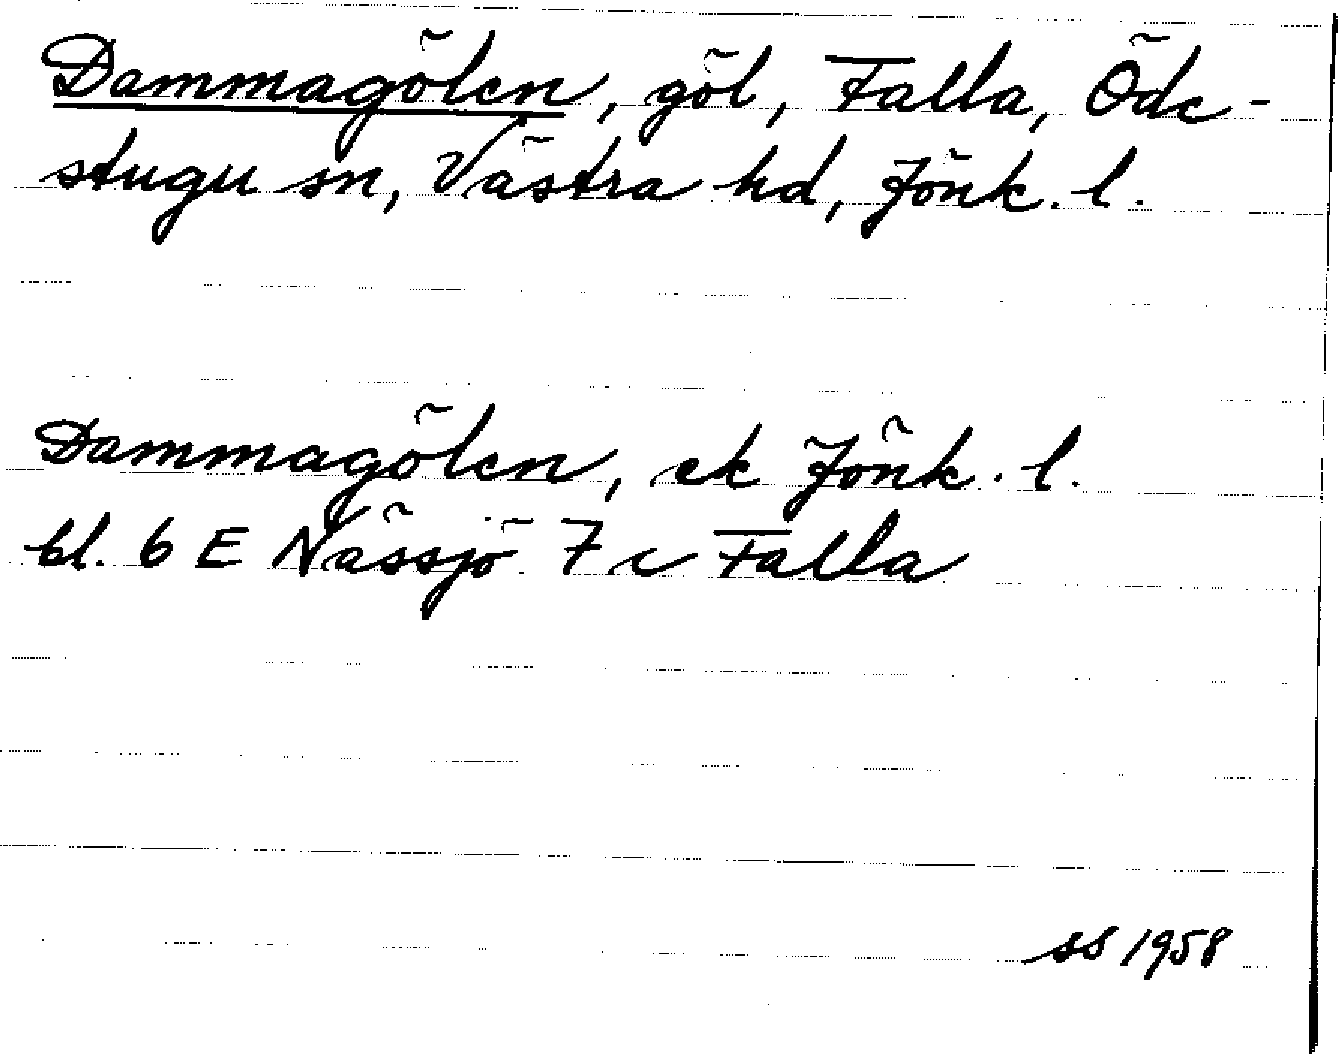 Dammagölen, göl, Falla, Öde-
stugu sn, Västra hd, Jönk. l.
Dammagölen, ek Jönk. l.
bl. 6 E Nässjö 7 c Falla
SS 1958